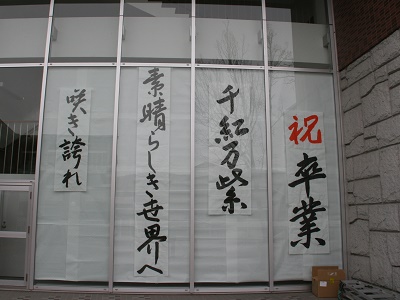 祝卒業
千紅万紫
素晴らしき世界へ
咲き誇れ